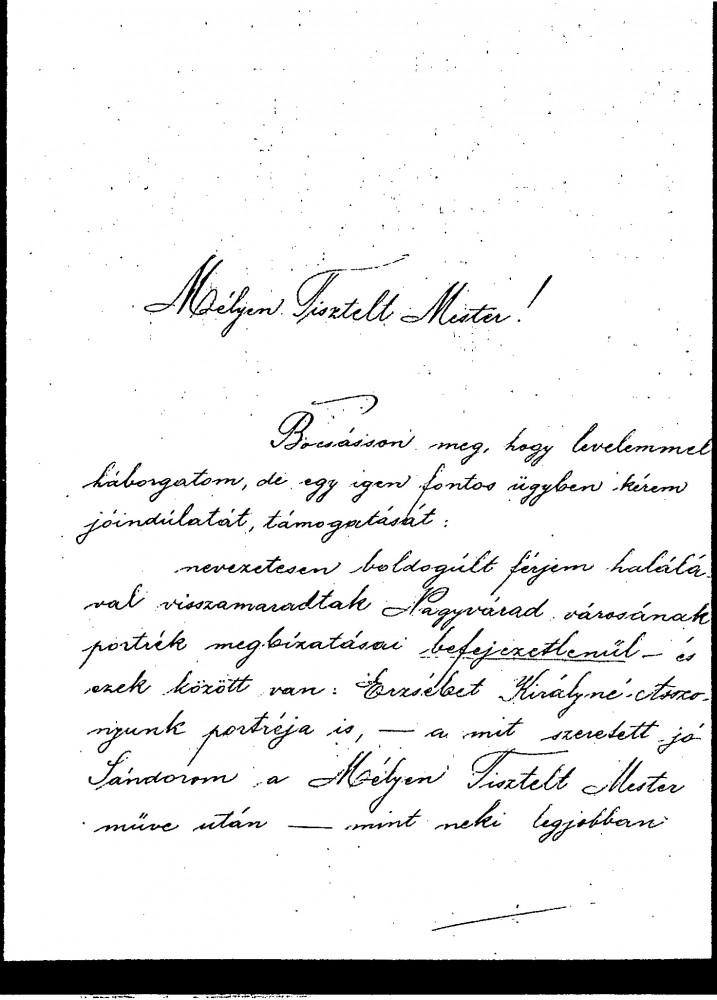 Mélyen Tisztelt Mester!
Bocsásson meg, hogy levelemmel
háborgatom, de egy igen fontos ügyben kérem
jóindúlatát, támogatását:
nevezetesen boldogúlt férjem halálá-
val visszamaradtak Nagyvárad városának
portrék megbízatásai befejezetlenűl – és
ezek között van: Erzsébet Királyné-Asszo-
nyunk portréja is, — a mit szeretett jó
Sándorom a Mélyen Tisztelt Mester
műve után — mint neki legjobban